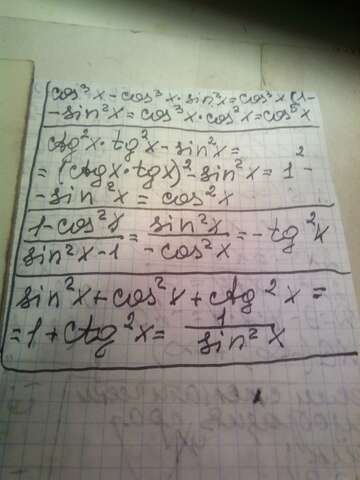 cos³x - cos³x · sin²x = cos³x (1-
- sin²x = cos³x · cos²x = cos⁵x
ctg²x · tg²x - sin²x =
= (ctgx · tgx)² - sin²x = 1² -
- sin²x = cos²x
1-cos²x / sin²x-1 = sin²x / -cos²x = -tg²x
sin²x + cos²x + ctg²x =
= 1 + ctg²x = 1 / sin²x